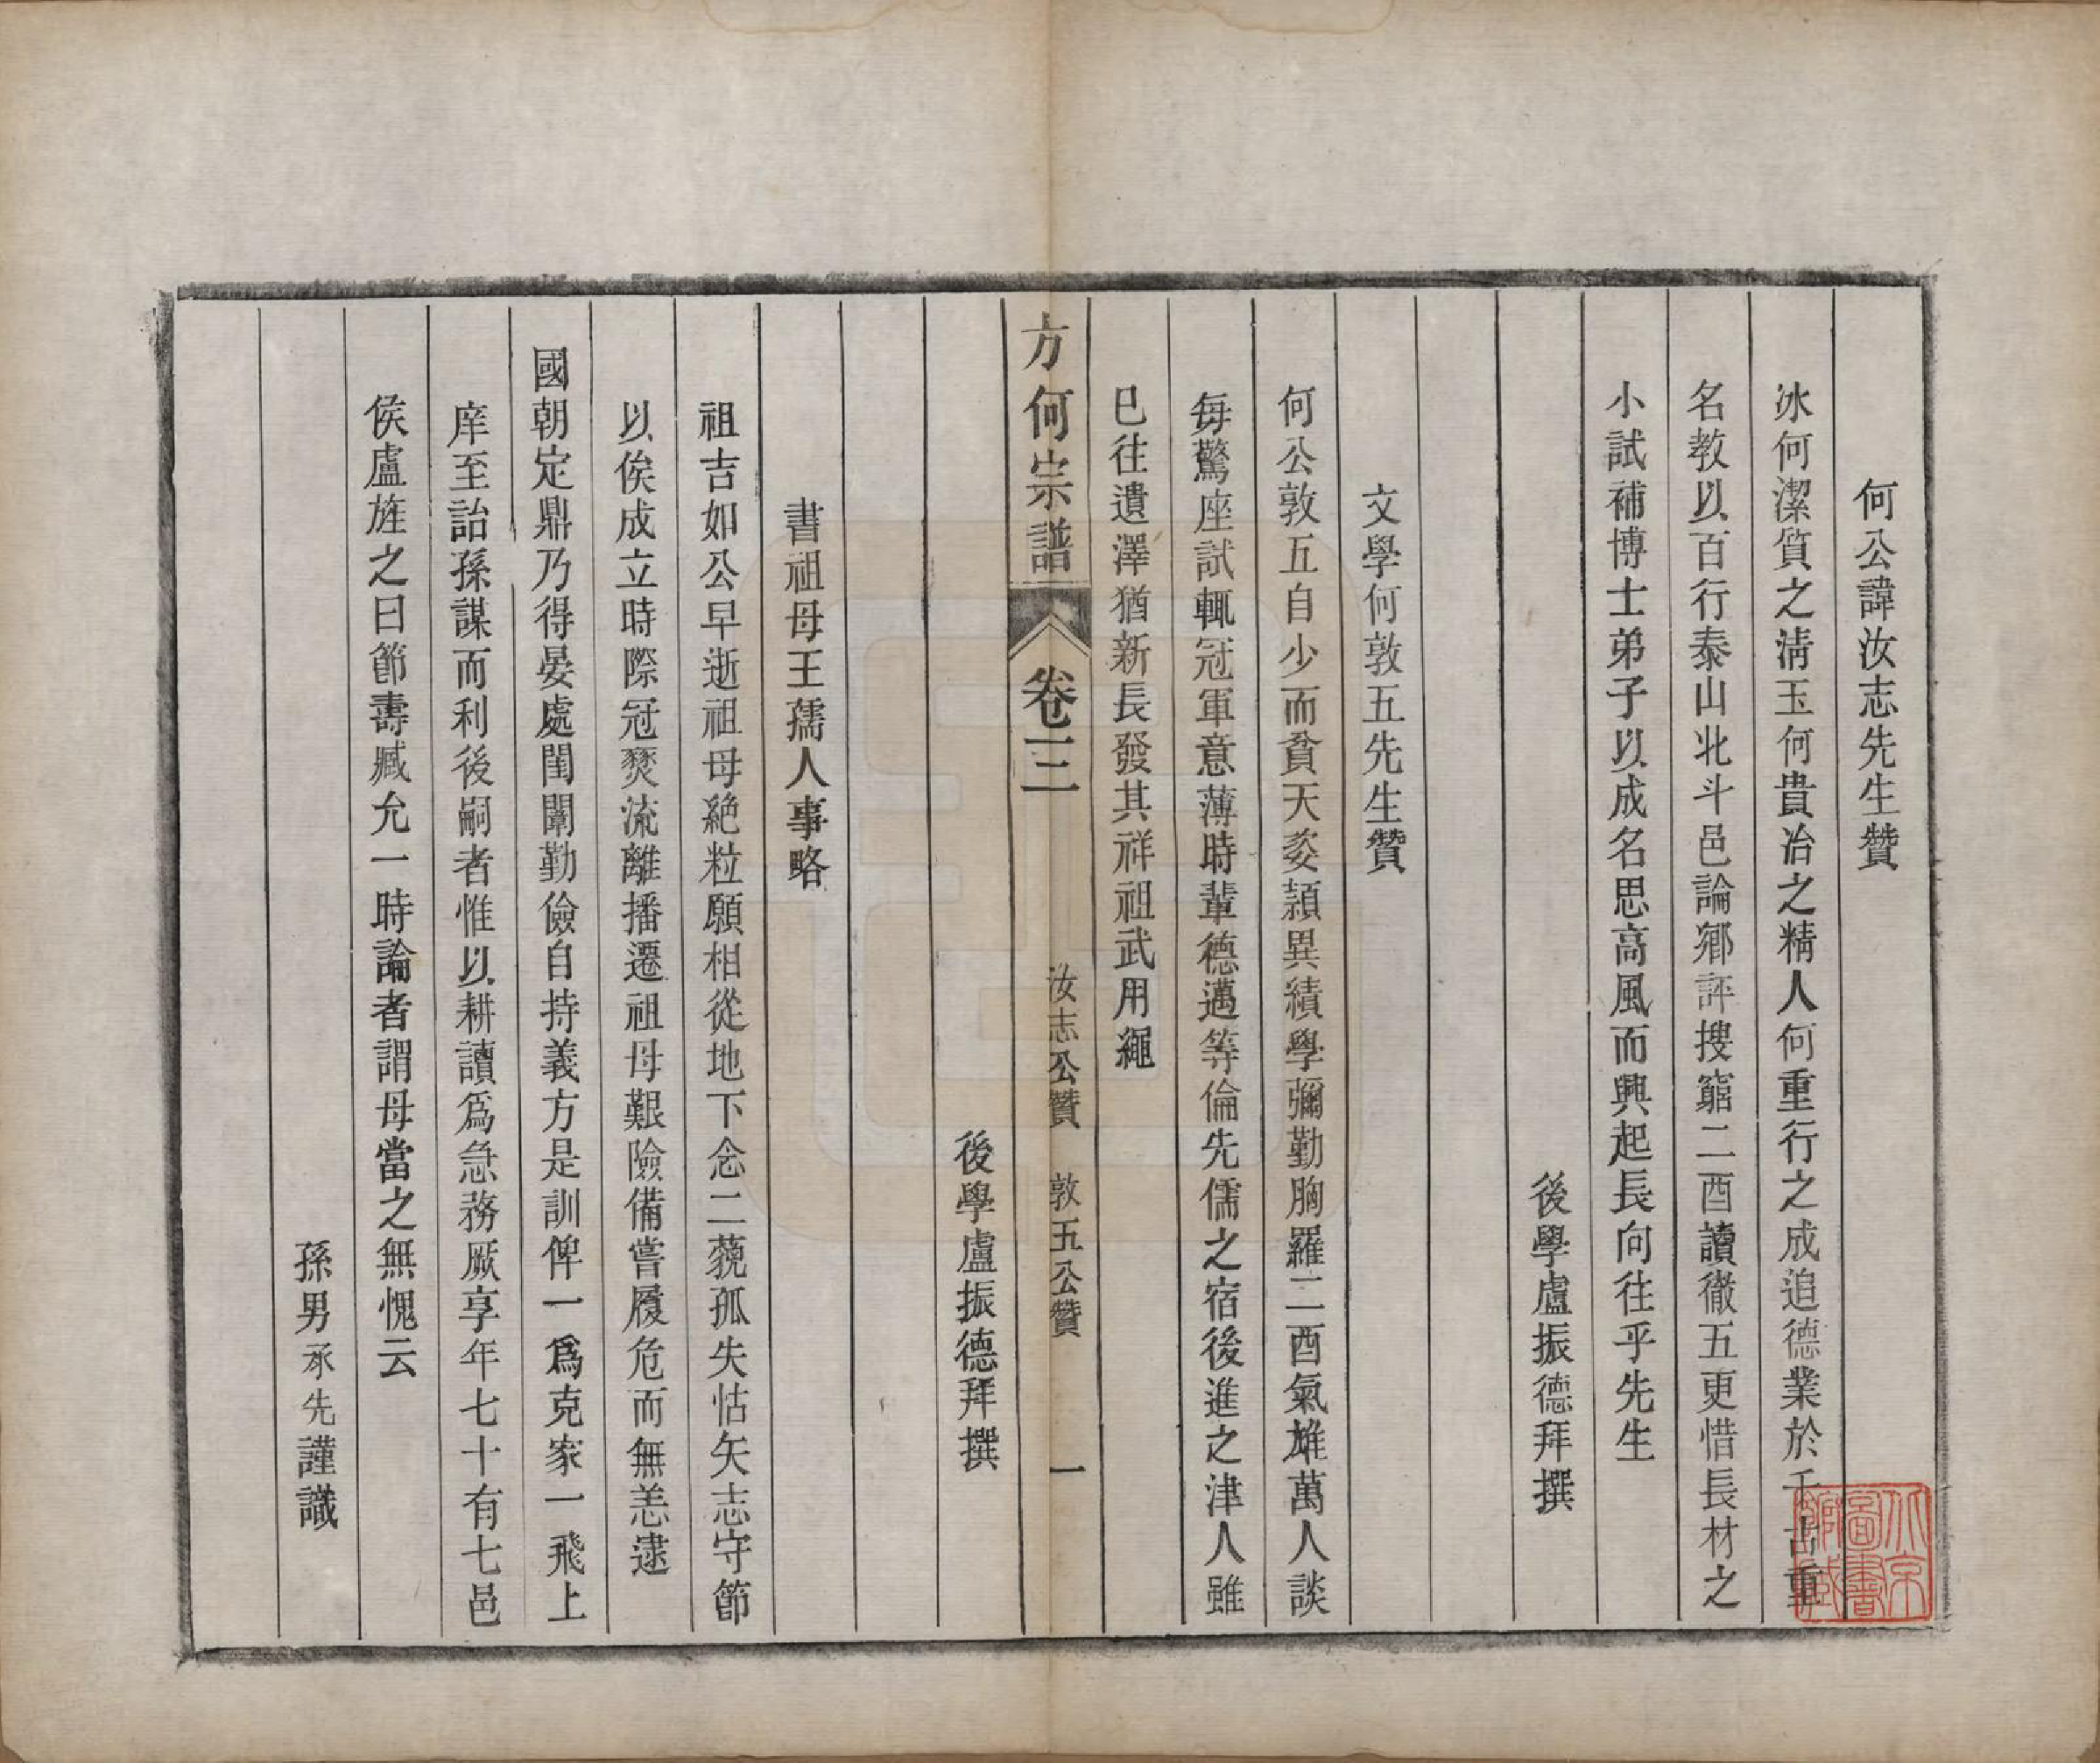 何公諱汝志先生贊
冰何潔質之清玉何貴冶之精人何重行之成追德業於千古重
名教以百行泰山北斗邑論鄉評搜窮二酉讀徹五更惜長材之
小試補博士弟子以成名思高風而興起長向往乎先生
後學盧振德拜撰
文學何敦五先生贊
何公敦五自少而貧天姿頴異績學彌勤胸羅二酉氣雄萬人談
每驚座試輒冠軍意薄時輩德邁等倫先儒之宿後進之津人雖
已往遺澤猶新長發其祥祖武用繩
方何宗譜 卷三 汝志公贊 敦五公贊 一
後學盧振德拜撰
書祖母王孺人事略
祖吉如公早逝祖母絶粒願相從地下念二藐孤失怙矢志守節
以俟成立時際冠燹流離播遷祖母艱險備嘗履危而無恙逮
國朝定鼎乃得晏處閨闈勤儉自持義方是訓俾一爲克家一飛上
庠至詒孫謀而利後嗣者惟以耕讀爲急務厥享年七十有七邑
侯盧旌之曰節壽臧允一時論者謂母當之無愧云
孫男承先謹識
北京圖書館藏